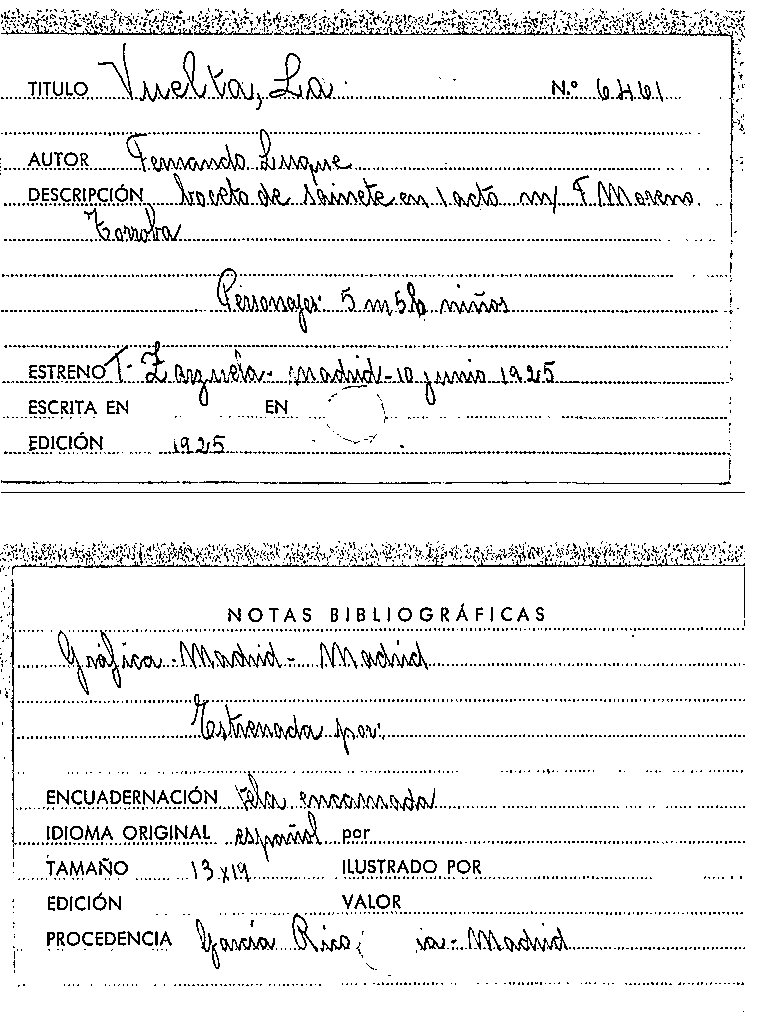 TITULO Vuelta, La N.º 6461
AUTOR Fernando Luque
DESCRIPCIÓN boceto de sainete en 1 acto m/ F Moreno
Torroba
Personajes: 5 m 5 h niños
ESTRENO T. Zarzuela - Madrid - 10 junio 1925
ESCRITA EN EN
EDICIÓN 1925
NOTAS BIBLIOGRÁFICAS
Gráfica - Madrid - Madrid
Estrenada por:
ENCUADERNACIÓN tela encarnada
IDIOMA ORIGINAL español por
TAMAÑO 13x19 ILUSTRADO POR
EDICIÓN VALOR
PROCEDENCIA García Rico ia - Madrid